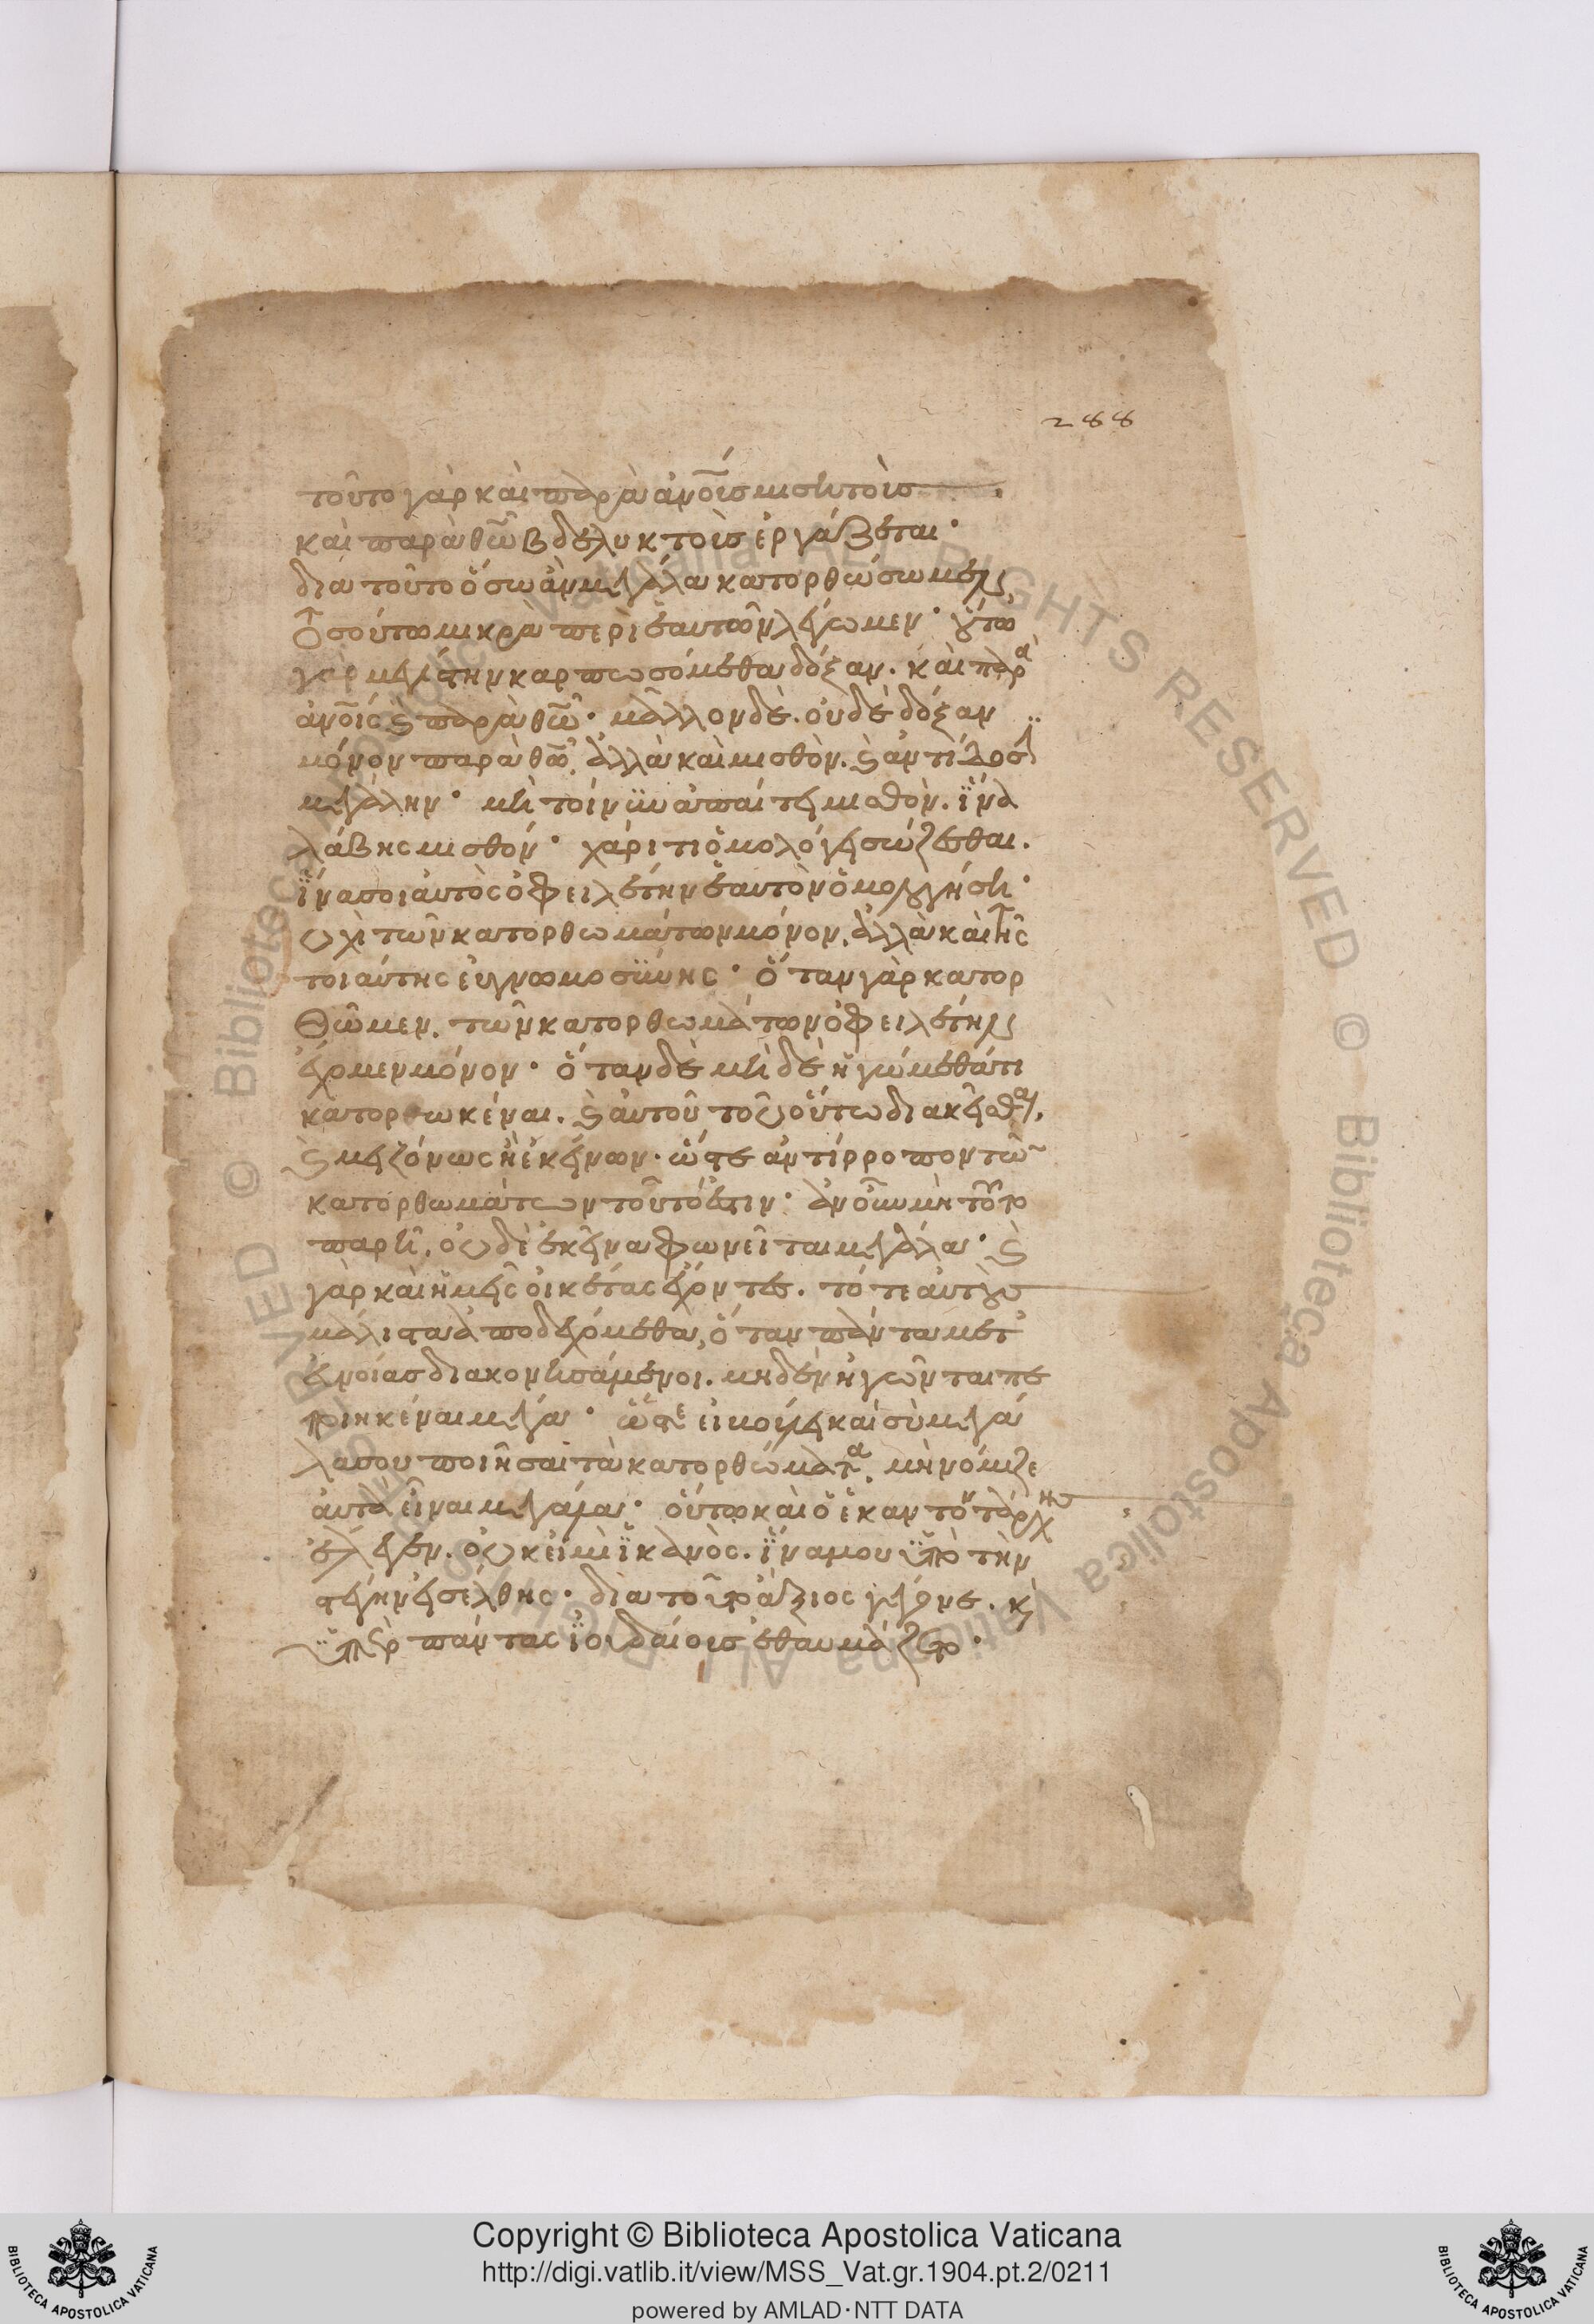 288
τοῦτο γὰρ καὶ παρὰ ἀν̅οις μισητοὺς
καὶ παρὰ θ̅ω βδελυκτοὺς ἐργάζεται·
διὰ τοῦτο ὅσω ἂν μεγάλα κατορθώσωμεν,
τοσούτω μικρὰ περὶ ἑαυτῶν λέγωμεν· οὕτω
γὰρ μεγίστην καρπωσόμεθα δόξαν. καὶ παρὰ
ἀν̅οις καὶ παρὰ θ̅ω· μᾶλλον δὲ. οὐδὲ δόξαν
μόνον παρὰ θ̅ω, ἀλλὰ καὶ μισθὸν. καὶ ἀντίδοσιν
μεγάλην· μὴ τοίνϋν ἀπαίτει μισθὸν. ἵνα
λάβης μισθόν· χάριτι ὁμολόγει σώζεσθαι.
ἵνα σοι αὐτὸς ὀφειλέτην ἑαυτὸν ὁμολογήση·
οὐχὶ τῶν κατορθωμάτων μόνον, ἀλλὰ καὶ τῆς
τοιαύτης εὐγνωμοσϋνης· ὅταν γὰρ κατορ
θῶμεν. τῶν κατορθωμάτων ὀφειλέτην
ἔχομεν μόνον· ὅταν δὲ μὴ δὲ ἡγώμεθά τι
κατορθωκέναι. καὶ αὐτοῦ τοῦ οὕτω διακεῖσθαι,
καὶ μειζόνως ἢ ἐκείνων· ὥστε ἀντίρροπον τῶν
κατορθωμάτων τοῦτό ἐστιν· ἂν οὖν μὴ τοῦτο
παρῆ, οὐδὲ ἐκεῖνα φωνεῖται μεγάλα· καὶ
γὰρ καὶ ἡμεῖς οἰκέτας ἔχοντες. τότε αὐτοὺς
μάλιστα ἀποδεχόμεθα, ὅταν πάντα μετ'
εὐνοίας διακονησάμενοι. μηδὲν ἡγῶνται πε
ποιηκέναι μέγα· ὥστε εἰ βούλει καὶ σὺ μεγά
λα σου ποιῆσαι τὰ κατορθώματα, μὴ νόμιζε
αὐτὰ εἶναι μεγάλα· οὕτω καὶ ὁ ἑκατόνταρχος
ἔλεγεν. οὐκ εἰμὶ ἱκανὸς. ἵνα μου ὑπὸ τὴν
στέγην εἰσέλθης· διὰ τοῦτο ἄξιος γέγονε. καὶ
ὑπὲρ πάντας ἰουδαίους ἐθαυμάζετο·
Copyright © Biblioteca Apostolica Vaticana
http://digi.vatlib.it/view/MSS_Vat.gr.1904.pt.2/0211
powered by AMLAD·NTT DATA